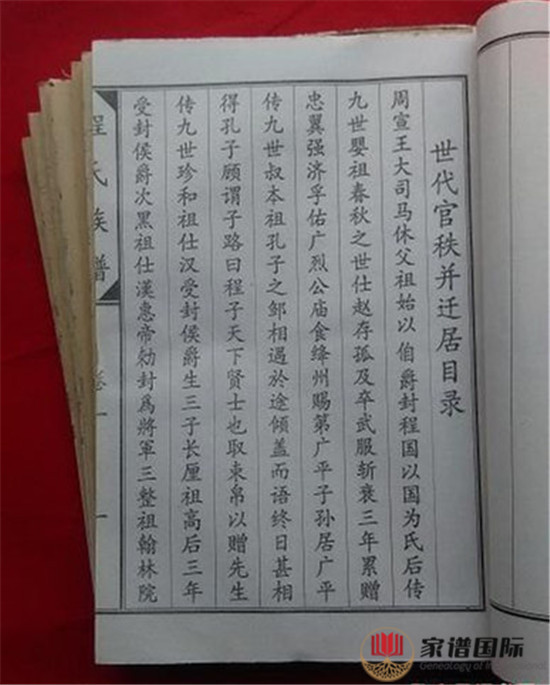 世代官秩并迁居目录
周宣王大司马休父祖始以伯爵封程国以国为氏后传
九世婴祖春秋之世仕赵存孤及卒武服斩衰三年累赠
忠翼强济孚佑广烈公庙食绛州赐第广平子孙居广平
传九世叔本祖孔子之邹相遇於途倾盖而语终日甚相
得孔子顾谓子路曰程子天下贤士也取束帛以赠先生
传九世珍和祖仕汉受封侯爵生三子长厘祖高后三年
受封侯爵次黑祖仕漢惠帝勑封爲將軍三整祖翰林院
程氏族谱 卷一 一
家谱国际
Genealogy of